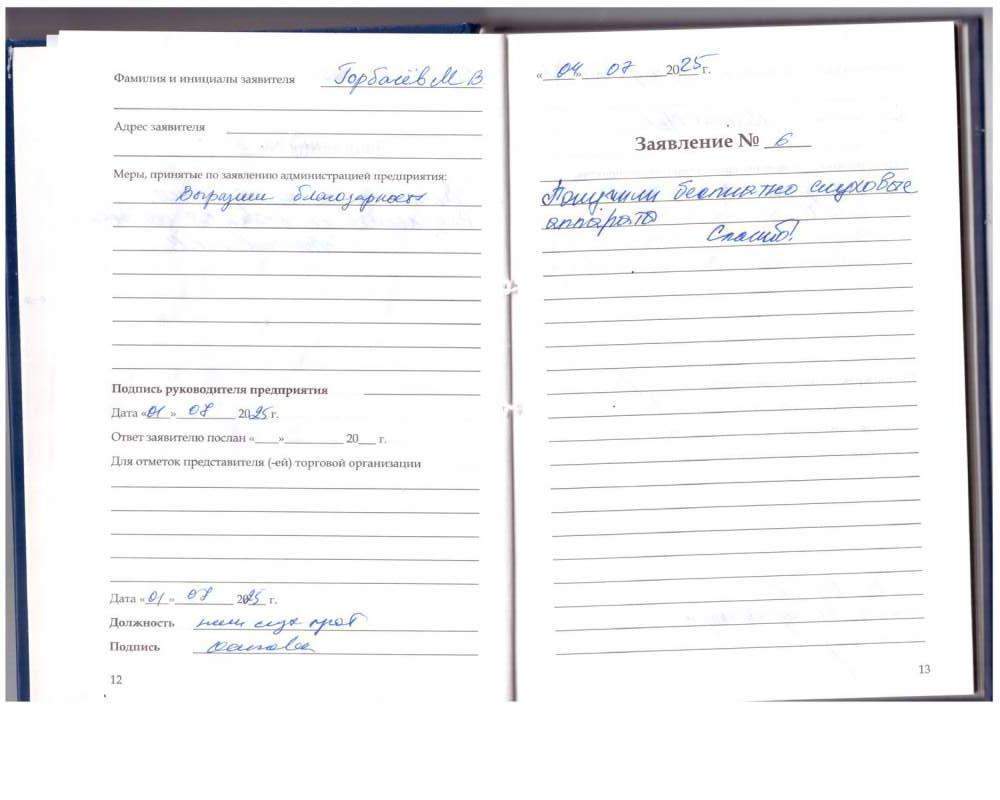 Фамилия и инициалы заявителя Горбачёв М В
Адрес заявителя
Меры, принятые по заявлению администрацией предприятия:
Выразили благодарность
Подпись руководителя предприятия
Дата «01» 07 2025 г.
Ответ заявителю послан «____»__________ 20___ г.
Для отметок представителя (-ей) торговой организации
Дата «01» 07 2025 г.
Должность
Подпись
12
«04» 07 2025 г.
Заявление № 6
Получили бесплатно слуховые
аппарата
Спасибо!
13